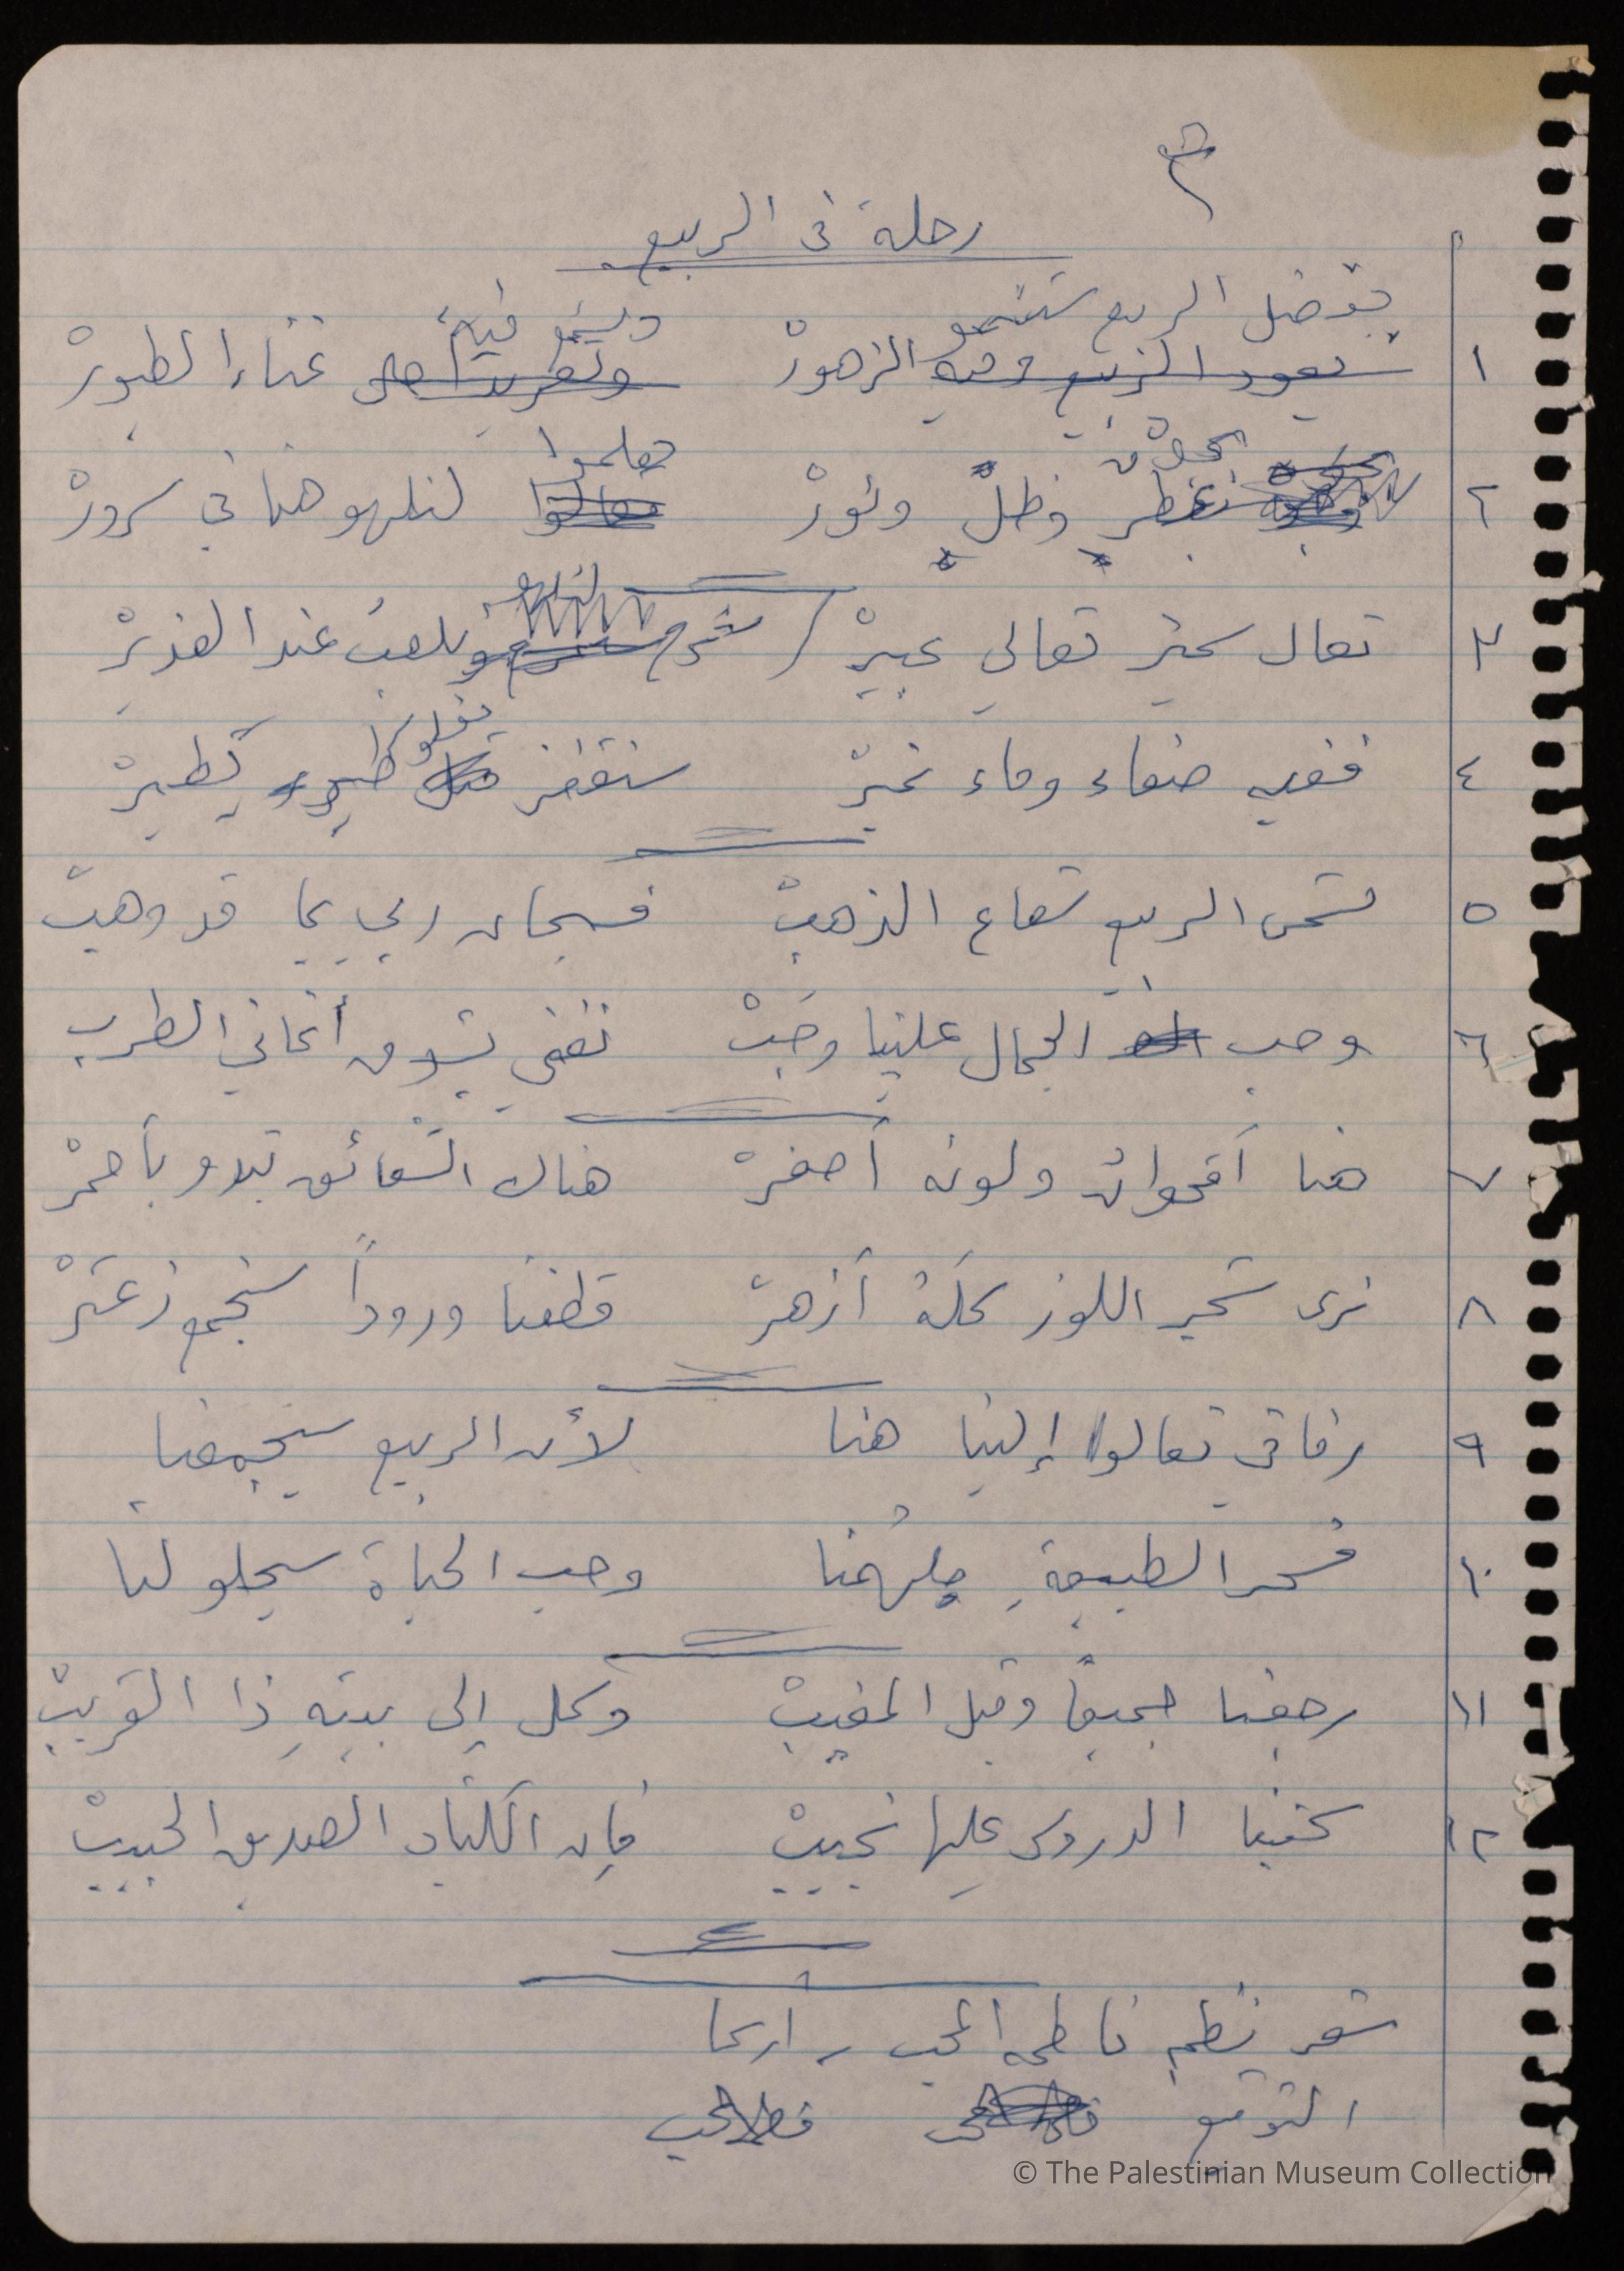 رحلة في الربيع
بفضل الربيع ستنمو ونسمع فيه
١ يعود الربيع وفيه الزهورْ غناء الطيورْ
هلموا
٢ نعطر وظلٌ ونورْ تعالوا لنلهو هنا في سرورْ
٣ تعال سمير تعالي عبيرْ سنمرح ونلعب عند الغديرْ
٤ ففيه صفاء وماء نميرْ سنقفز مثل طيور تطيرْ
٥ شمس الربيع شعاع الذهبْ فسبحان ربي بما قد وهبْ
٦ وحب الجمال علينا وجَبْ نغني بشوق أغاني الطرب
٧ هنا أقحوان ولونه أصفرْ هناك الشقائق تبدو بأحمرْ
٨ نرى شجر اللوز كله أزهرْ قطفنا وروداً سنجمع زعترْ
٩ رفاقي تعالوا إلينا هنا لأن الربيع سيجمعنا
١٠ فسحر الطبيعةِ يلهمُنا وحب الحياة سيحلو لنا
١١ رجعنا جميعاً وقبل المغيبْ وكل إلى بيتهِ ذا القريبْ
١٢ كتبنا الدروس عليها نجيبْ فإن الكتاب الصديق الحبيبْ
شعر ونظم فاطمة المحب - اريحا
التوقيع
© The Palestinian Museum Collection